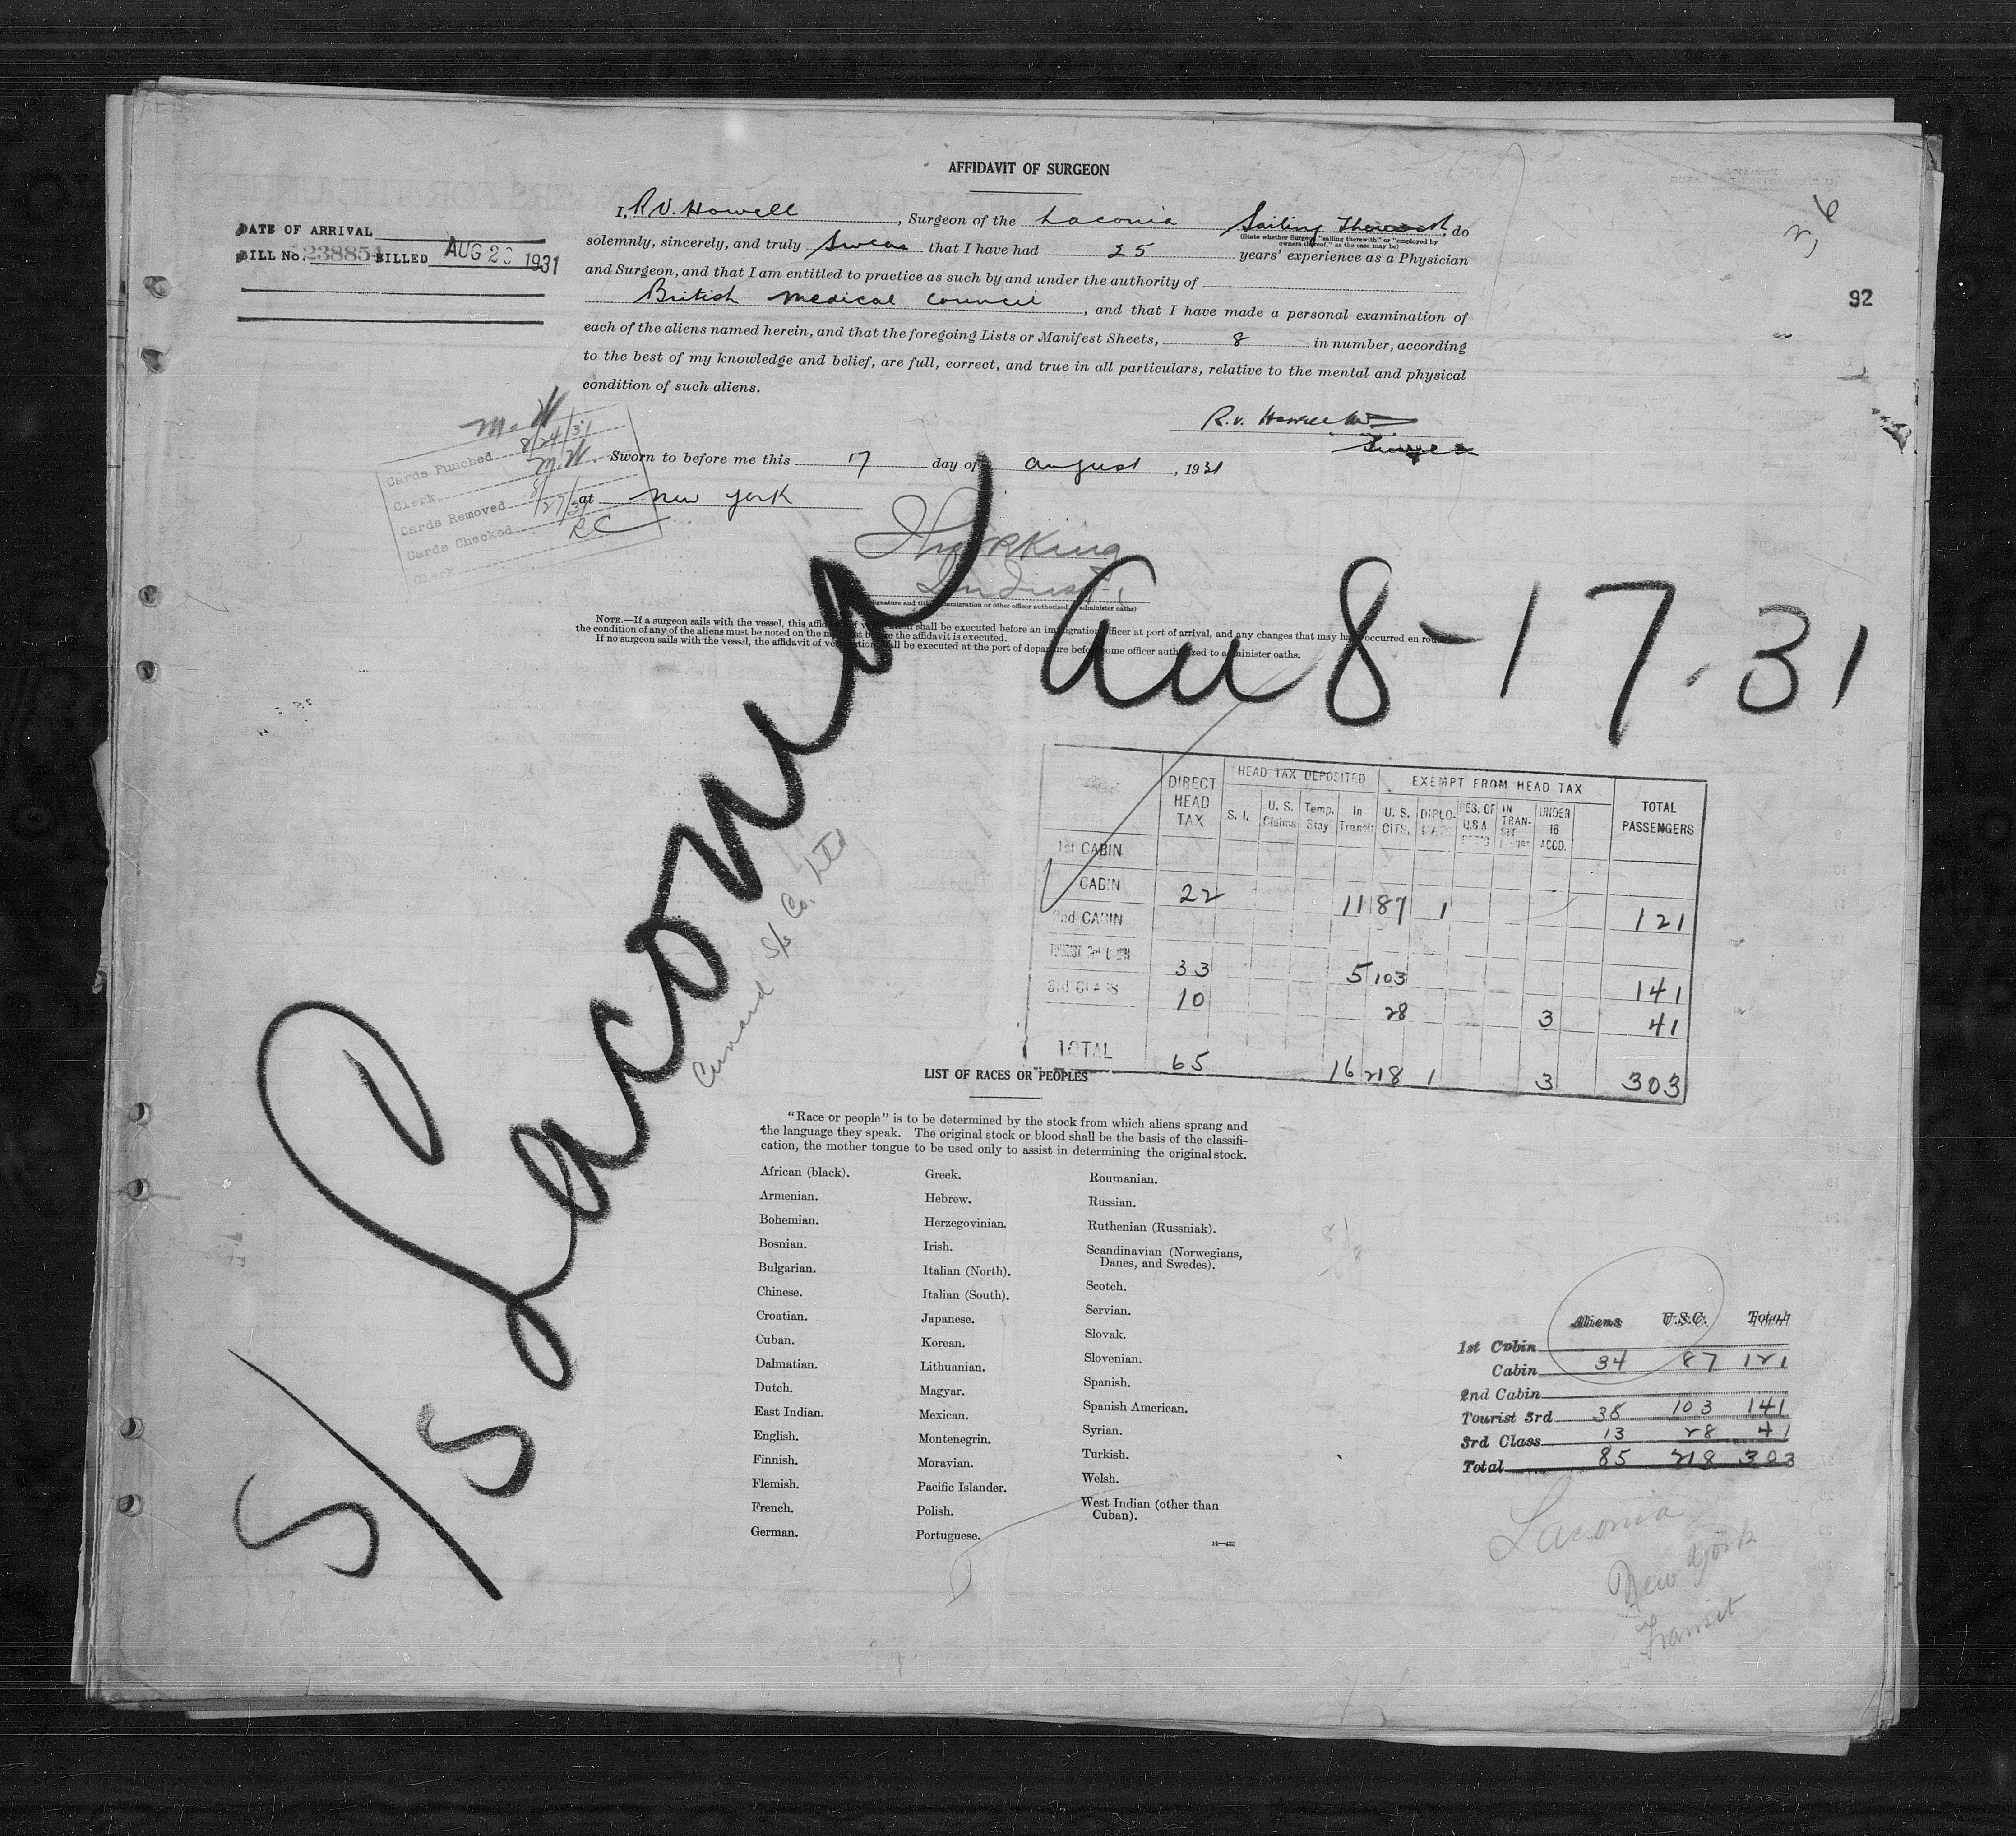 AFFIDAVIT OF SURGEON
DATE OF ARRIVAL
BILL No. 238854 BILLED AUG 20 1931
I, R.V. Howell, Surgeon of the Laconia Sailing Therewith, do
(State whether Surgeon "sailing therewith" or "employed by
owners thereof," as the case may be)
solemnly, sincerely, and truly swear that I have had 25 years' experience as a Physician
and Surgeon, and that I am entitled to practice as such by and under the authority of
British Medical Council, and that I have made a personal examination of
each of the aliens named herein, and that the foregoing Lists or Manifest Sheets, 8 in number, according
to the best of my knowledge and belief, are full, correct, and true in all particulars, relative to the mental and physical
condition of such aliens.
92
R.V. Howell
Surgeon
Sworn to before me this 17 day of August, 1931
at New York
M.W.
Cards Punched 8/24/31
Clerk M.W.
Cards Removed 8/27/31
Cards Checked RC
Clerk
(Signature and title of immigration or other officer authorized to administer oaths)
NOTE.—If a surgeon sails with the vessel, this affidavit shall be executed before an immigration officer at port of arrival, and any changes that may have occurred en route
the condition of any of the aliens must be noted on the manifest before the affidavit is executed.
If no surgeon sails with the vessel, the affidavit of verification shall be executed at the port of departure before some officer authorized to administer oaths.
S/S Laconia
Cunard S/S Co. Ltd
8-17-31
DIRECT HEAD TAX
HEAD TAX DEPOSITED
EXEMPT FROM HEAD TAX
TOTAL PASSENGERS
S. I. U. S. Claims Temp. Stay In Transit U. S. CITS. DIPLO- RES. OF U.S.A. IN TRAN- SIT UNDER 16 ACCD.
1st CABIN
CABIN 22 11 87 1 121
2nd CABIN
TOURIST 3rd CABIN 33 5 103 141
3rd CLASS 10 28 3 41
TOTAL 65 16 218 1 3 303
LIST OF RACES OR PEOPLES
"Race or people" is to be determined by the stock from which aliens sprang and
the language they speak. The original stock or blood shall be the basis of the classifi-
cation, the mother tongue to be used only to assist in determining the original stock.
African (black).
Armenian.
Bohemian.
Bosnian.
Bulgarian.
Chinese.
Croatian.
Cuban.
Dalmatian.
Dutch.
East Indian.
English.
Finnish.
Flemish.
French.
German.
Greek.
Hebrew.
Herzegovinian.
Irish.
Italian (North).
Italian (South).
Japanese.
Korean.
Lithuanian.
Magyar.
Mexican.
Montenegrin.
Moravian.
Pacific Islander.
Polish.
Portuguese.
Roumanian.
Russian.
Ruthenian (Russniak).
Scandinavian (Norwegians,
Danes, and Swedes).
Scotch.
Servian.
Slovak.
Slovenian.
Spanish.
Spanish American.
Syrian.
Turkish.
Welsh.
West Indian (other than
Cuban).
14—430
Aliens U.S.C. Total
1st Cabin
Cabin 34 87 121
2nd Cabin
Tourist 3rd 38 103 141
3rd Class 13 28 41
Total 85 218 303
Laconia
New York
Transit